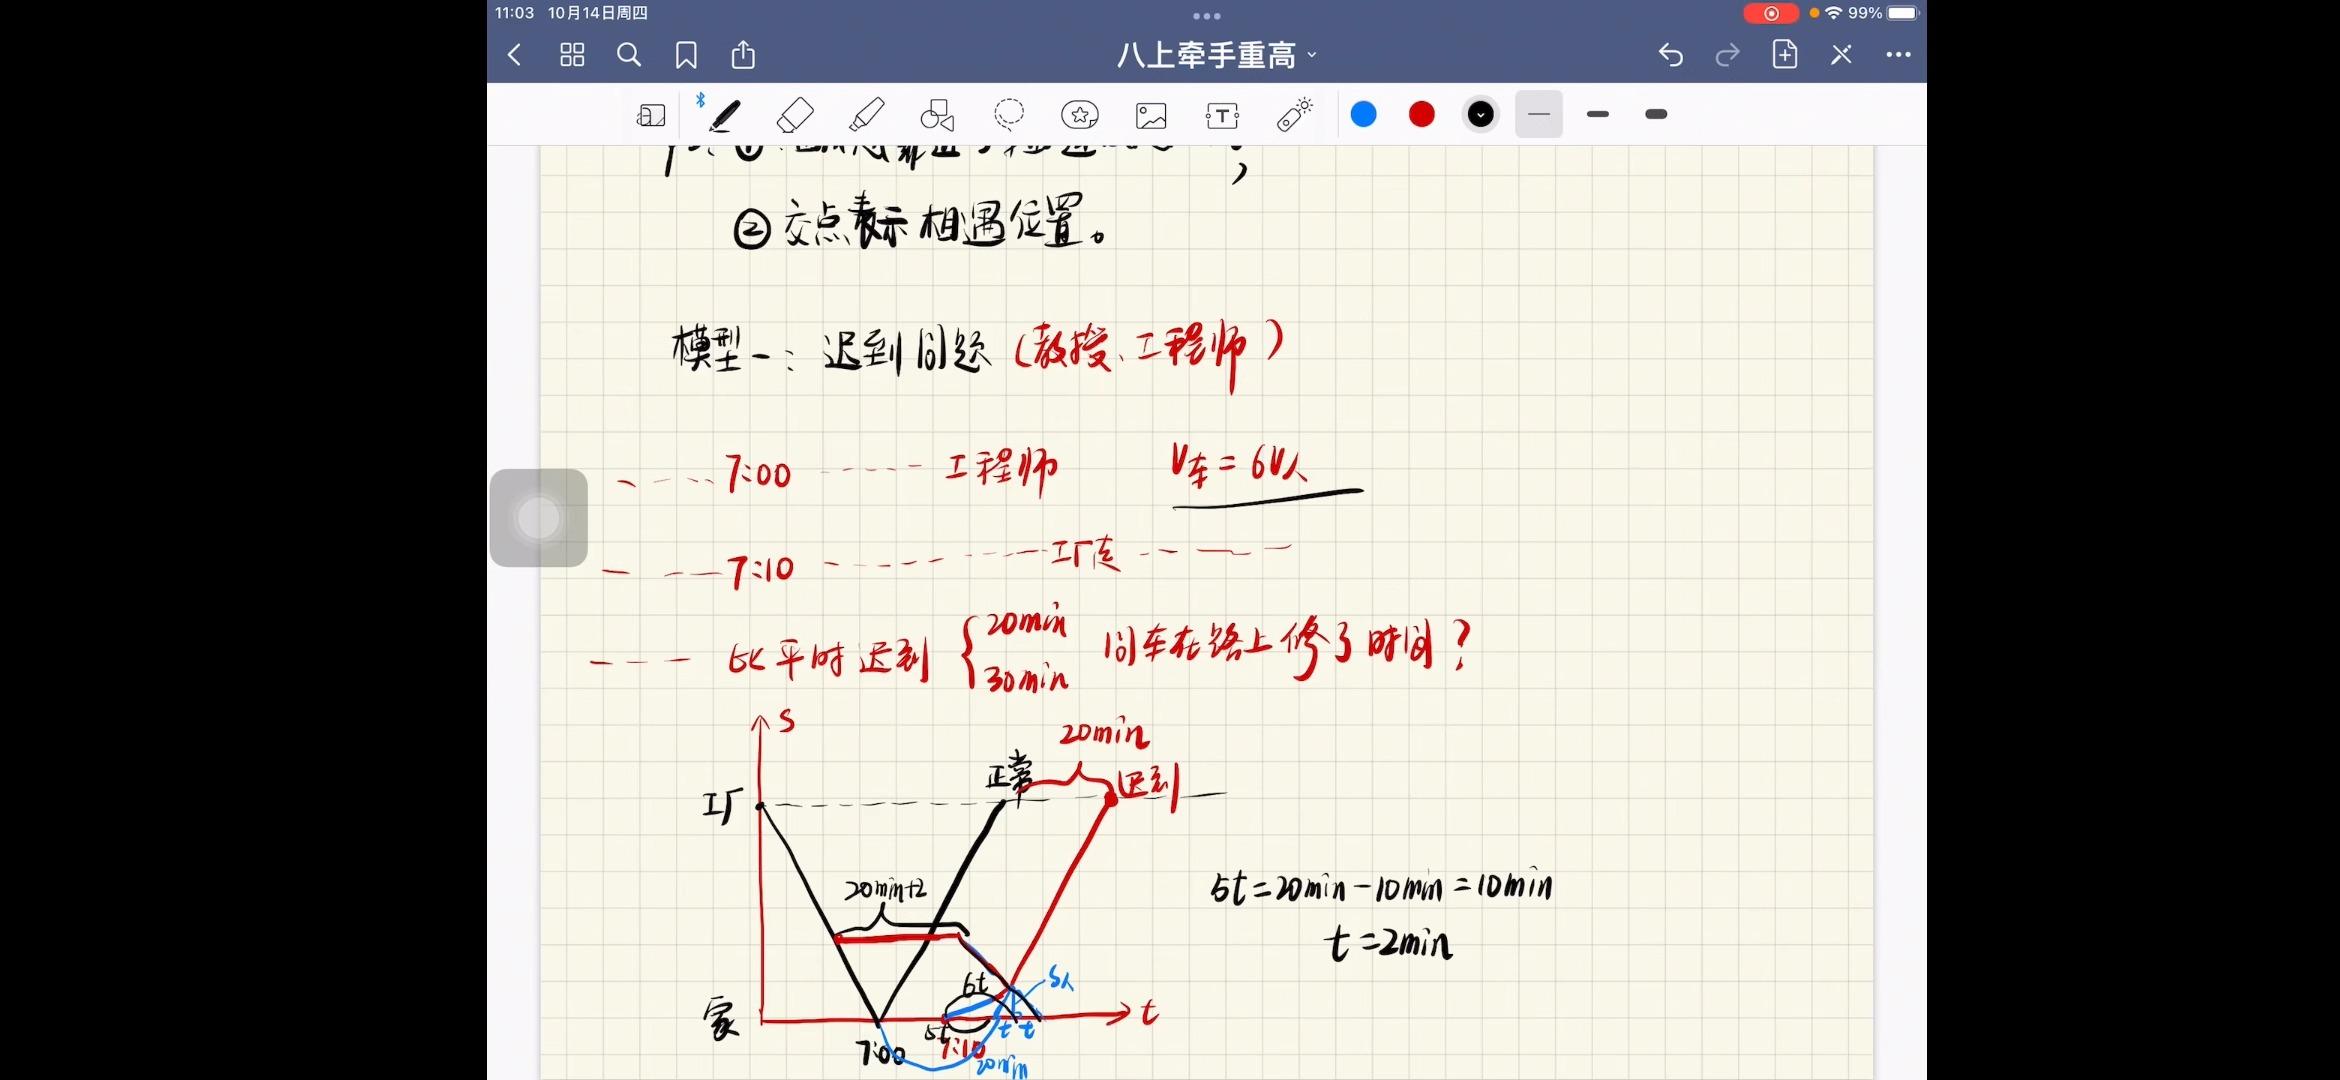 11:03 10月14日周四
99%
八上牵手重高
②交点表示相遇位置。
模型一：迟到问题（教授、工程师）
7:00 工程师 V车=6V人
7:10 工厂走
比平时迟到 { 20min 30min 问车在路上修了时间？
S
20min
正常
迟到
工厂
20min+2
5t=20min-10min=10min
t=2min
6t
S人
家
t
5t
t t
7:00
7:10
20min